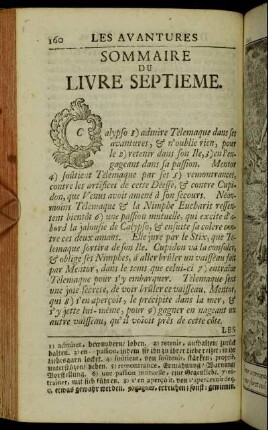 160 LES AVANTURES
SOMMAIRE
DU
LIVRE SEPTIEME.
Calypso 1) admire Telemaque dans ses
avantures, & n'oublie rien, pour
le 2) retenir dans son Ile, 3) en l'en-
gageant dans sa passion. Mentor
4) soûtient Telemaque par ses 5) remontrances,
contre les artifices de cette Déesse, & contre Cupi-
don, que Venus avoit amené à son secours. Néan-
moins Telemaque & la Nimphe Eucharis ressen-
tent bientôt 6) une passion mutuelle, qui excite d'a-
bord la jalousie de Calypso, & ensuite sa colere con-
tre ces deux amans. Elle jure par le Stix, que Te-
lemaque sortira de son Ile. Cupidon va la consoler,
& oblige ses Nimphes, à aller brûler un vaisseau fait
par Mentor, dans le tems que celui-ci 7) entraîne
Telemaque pour s'y embarquer. Telemaque sent
une joie secrete, de voir brûler ce vaisseau. Mentor
qui 8) s'en aperçoit, le précipite dans la mer, &
s'y jette lui-même, pour 9) gagner en nageant un
autre vaisseau, qu'il voioit près de cette côte.
LES
1) admirer, bewundern, loben. 2) retenir, aufhalten, zurück
halten. 4) soûtenir,
5) remontrance, Ermahnung, Warnung,
Vorstellung. 6) une passion mutuelle, eine Gegenliebe. 7) en-
trainer, mit sich führen. 8) s'en aperçoit, von s'apercevoir de,
etwas gewahr werden. 9) gagner, erreichen, sonst gewinnen.